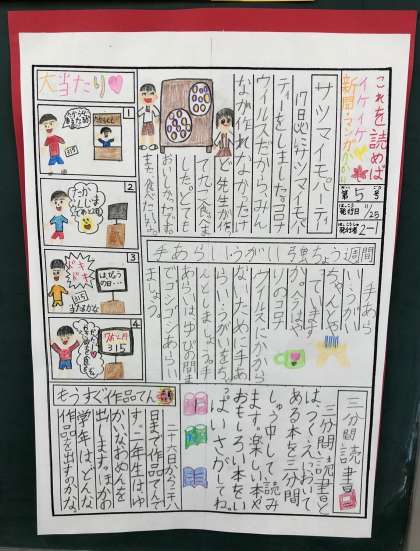 これを読めば
イケイケ
新聞マンガがのい
第5号
はっこう
発行日 11/25
はっこうしゃ
発行者 2-1
サツマイモパーティ
17日にサツマイモパ
ティーをしました。コロナ
ウィルスだから、みん
なが作れなかったけ
ど先生が作っ
て九こ食べま
した。とても
おいしかったです。
また食べたいな。
手あらいうがい強ちょう週間
手あら
いうがい
ちゃんとや
っています
か。今はや
りのコロナ
ウイルスにかから
ないために手あ
らいうがいをちゃ
んとしましょう。手
あらいはゆびの間ま
でゴシゴシあらい
ましょう。
三分間読書
三分間読書と
は、つくえにおいて
ある本を三分間
しゅう中して読み
ます。楽しい本や
おもしろい本をい
っぱいさがしてね。
もうすぐ作品てん
二十六日から二十八
日まで作品てんで
す。二年生はゆ
かいなおめんを
出します。ほかの
学年は、どんな
作品を出すのかな。
大当たり
1
たからくじ
315
2
3
ドキ
ドキ
はっぴょう
の日…
315
またまたかな
4
315